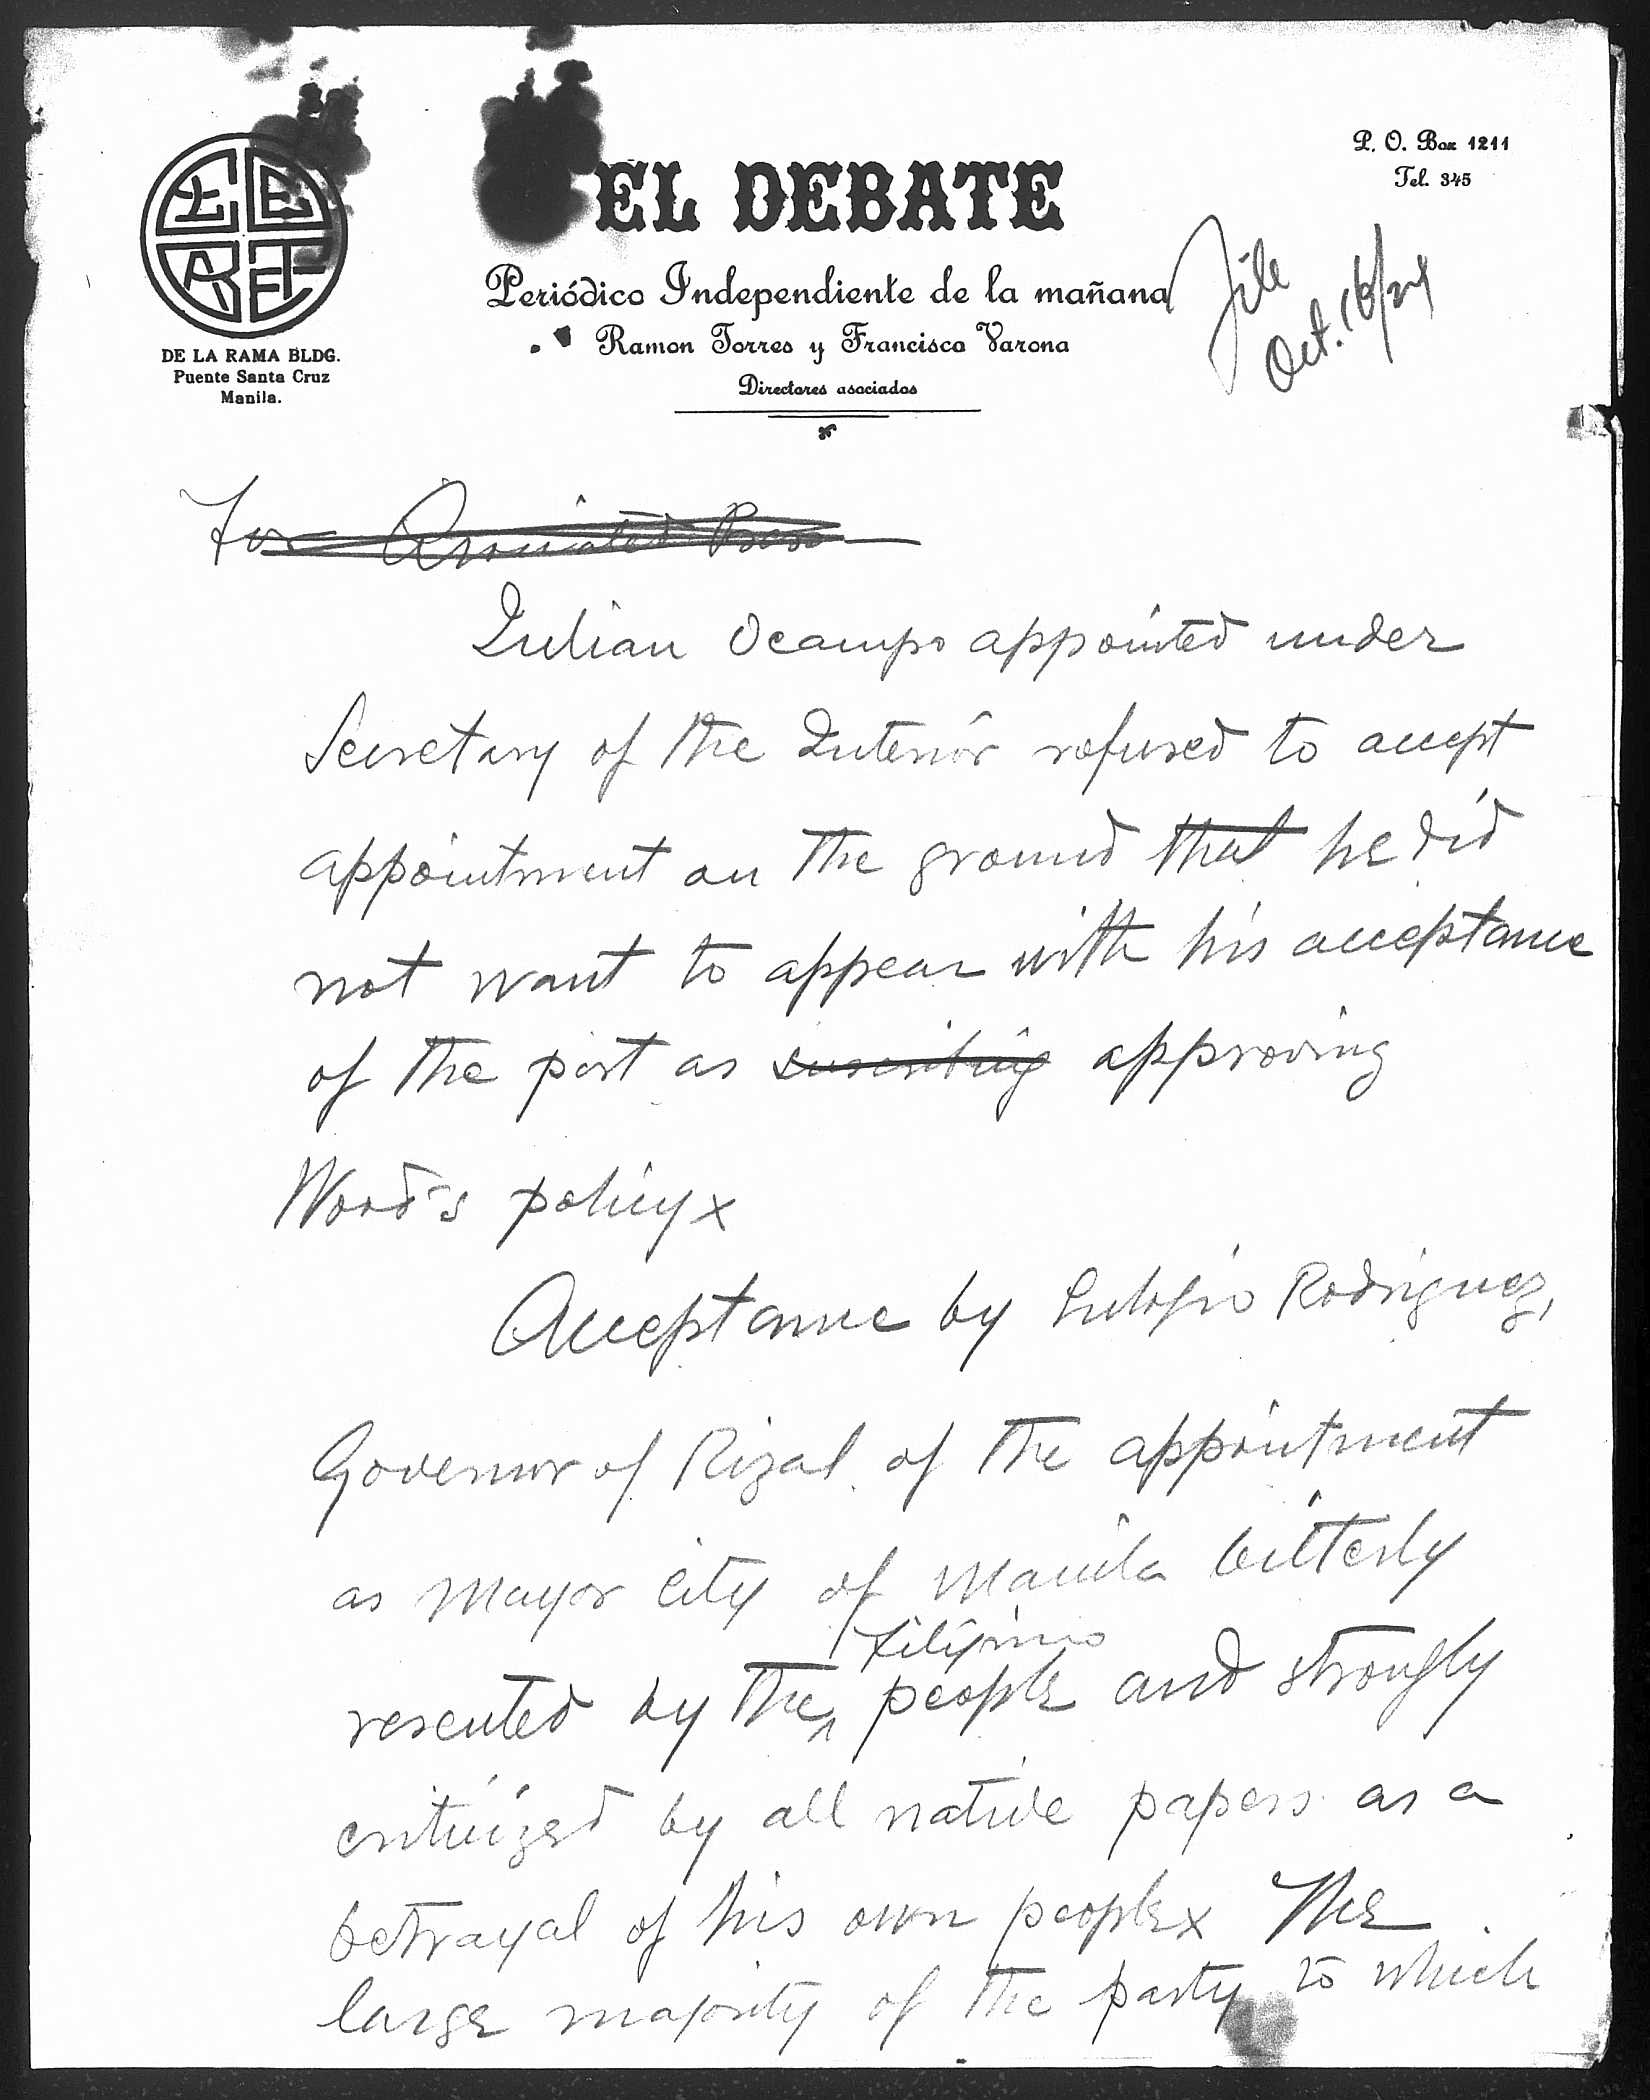 P. O. Box 1211
Tel. 345
EL DEBATE
EL DEBATE
Periódico Independiente de la mañana
Ramon Torres y Francisco Varona
Directores asociados
DE LA RAMA BLDG.
Puente Santa Cruz
Manila.
File
Oct. 16/24
For Associated Press
Julian Ocampo appointed under
Secretary of the Interior refused to accept
appointment on the ground that he did
not want to appear with his acceptance
of the post as suscribing approving
Wood's policy x
Acceptance by Eulogio Rodriguez,
Governor of Rizal of the appointment
as Mayor city of Manila bitterly
Filipino
resented by the people and strongly
criticized by all native papers as a
betrayal of his own people x The
large majority of the party to which